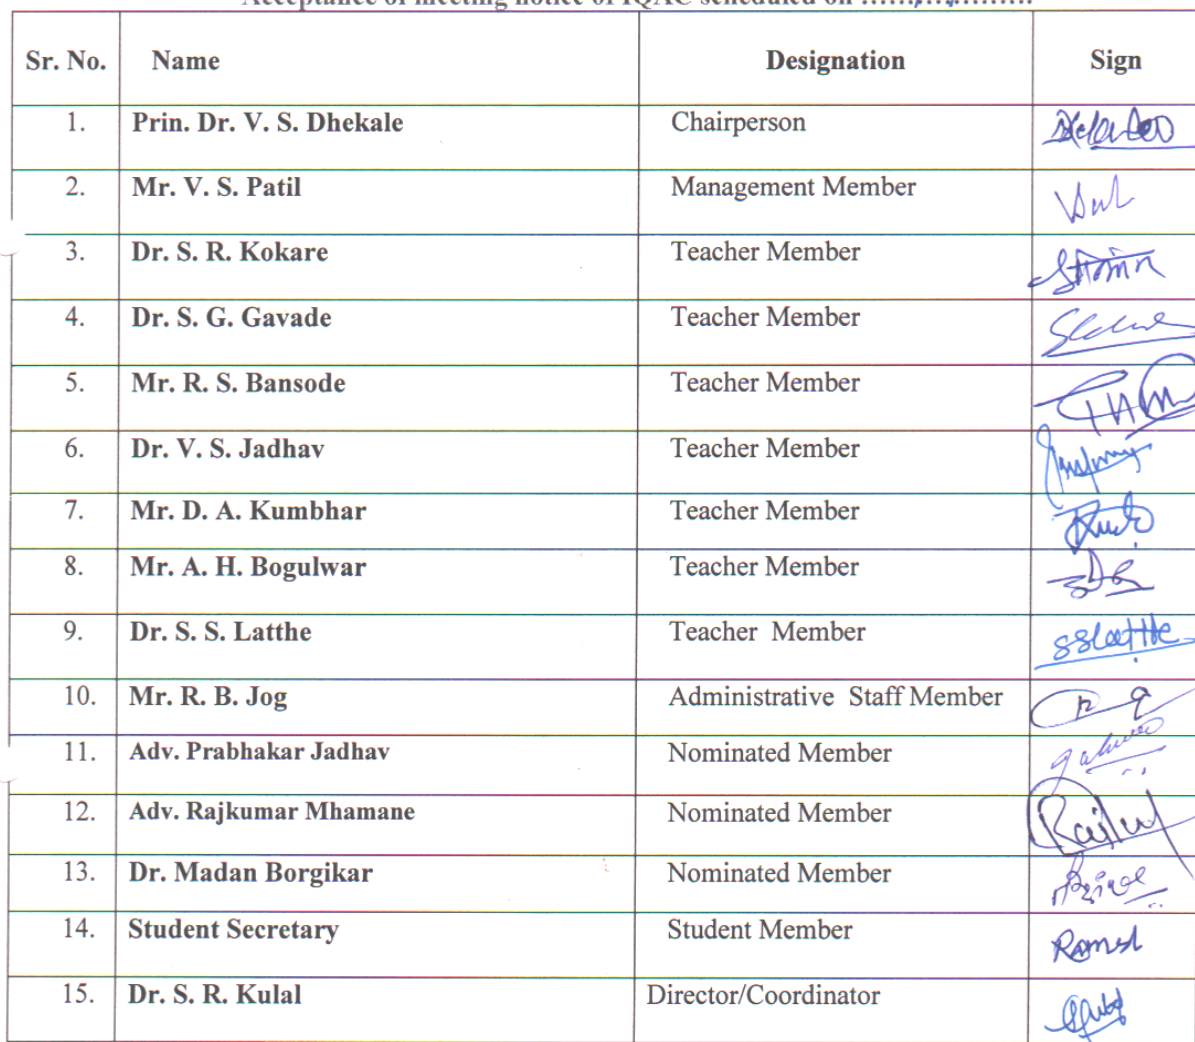 Acceptance of meeting notice of IQAC scheduled on
Sr. No. Name Designation Sign
1. Prin. Dr. V. S. Dhekale Chairperson
2. Mr. V. S. Patil Management Member
3. Dr. S. R. Kokare Teacher Member
4. Dr. S. G. Gavade Teacher Member
5. Mr. R. S. Bansode Teacher Member
6. Dr. V. S. Jadhav Teacher Member
7. Mr. D. A. Kumbhar Teacher Member
8. Mr. A. H. Bogulwar Teacher Member
9. Dr. S. S. Latthe Teacher Member SSLatthe
10. Mr. R. B. Jog Administrative Staff Member
11. Adv. Prabhakar Jadhav Nominated Member
12. Adv. Rajkumar Mhamane Nominated Member
13. Dr. Madan Borgikar Nominated Member
14. Student Secretary Student Member
15. Dr. S. R. Kulal Director/Coordinator